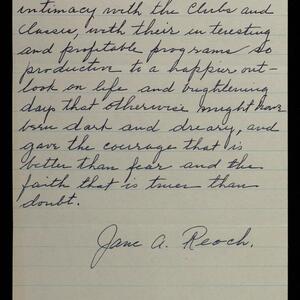 intimacy with the Clubs and
Classes, with their interesting
and profitable programs so
productive to a happier out-
look on life and brightening
days that otherwise might have
been dark and dreary, and
gave the courage that is
better than fear and the
faith that is truer than
doubt.
Jane A. Reoch.